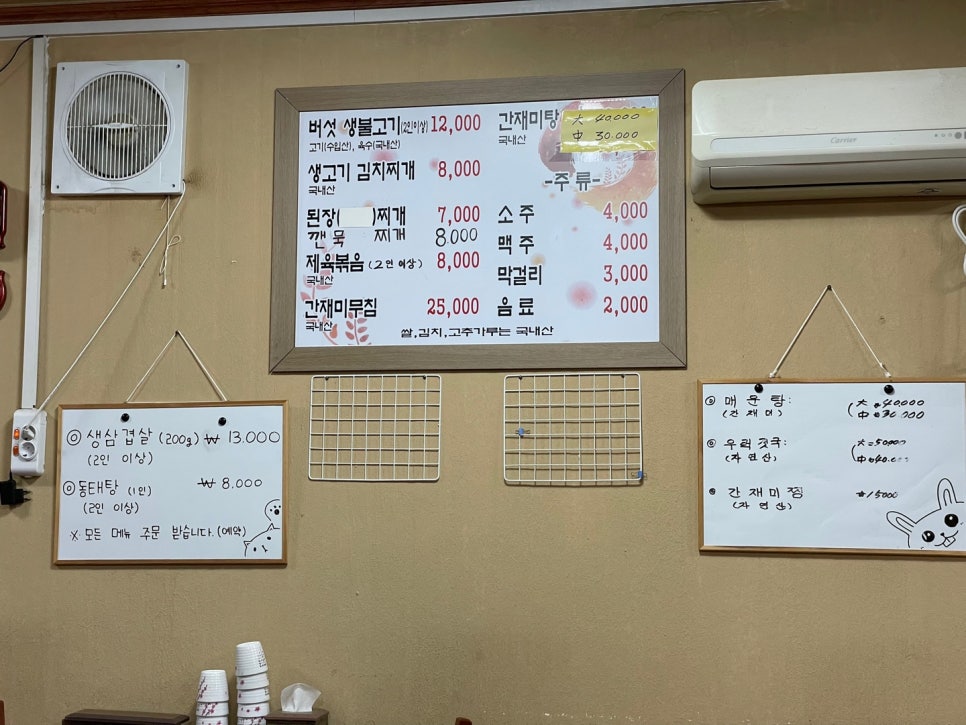 버섯 생불고기(2인이상) 12,000
고기(수입산), 육수(국내산)
생고기 김치찌개 8,000
국내산
된장( )찌개 7,000
깬묵 찌개 8.000
제육볶음 (2인 이상) 8,000
국내산
간재미무침 25,000
국내산
간재미탕 大 40,000
국내산 中 30.000
-주 류-
소 주 4,000
맥 주 4,000
막걸리 3,000
음 료 2,000
쌀,김치,고추가루는 국내산
Carrier
◎ 생삼겹살 (200g) ₩ 13.000
(2인 이상)
◎ 동태탕 (1인) ₩ 8.000
(2인 이상)
※ 모든 메뉴 주문 받습니다. (예약)
매 운 탕: 大 #40,000
(간 재 미) 中 #30,000
우럭 젓국: 大=50,000
(자 연 산) 中 #40.
간 재 미 찜
(자 연 산)